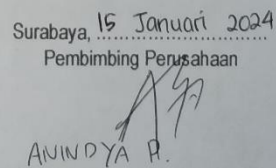 Surabaya, 15 Januari 2024
Pembimbing Perusahaan
ANINDYA P.